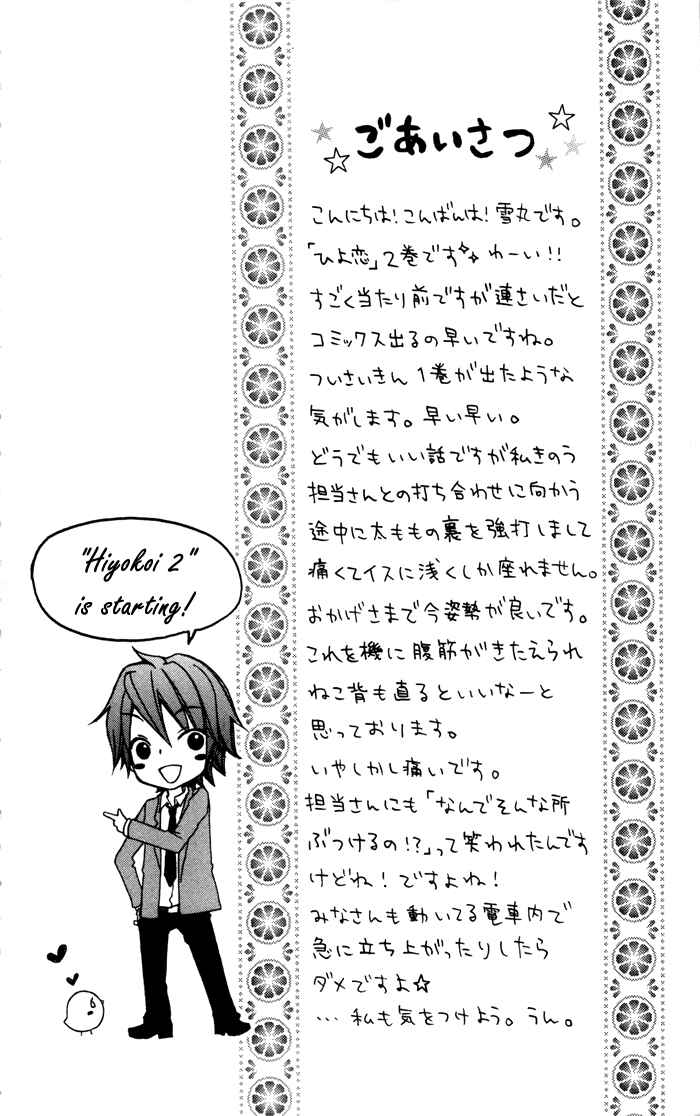 ごあいさつ
こんにちは!こんばんは!雪丸です。
「ひよ恋」2巻です わーい!!
すごく当たり前ですが連さいだと
コミックス出るの早いですね。
ついさいきん1巻が出たような
気がします。早い早い。
どうでもいい話ですが私きのう
担当さんとの打ち合わせに向かう
途中に太ももの裏を強打しまして
痛くてイスに浅くしか座れません。
おかげさまで今姿勢が良いです。
これを機に腹筋がきたえられ
ねこ背も直るといいなーと
思っております。
いやしかし痛いです。
担当さんにも「なんでそんな所
ぶつけるの!?」って笑われたんです
けどね!ですよね!
みなさんも動いてる電車内で
急に立ち上がったりしたら
ダメですよ☆
…私も気をつけよう。うん。
"Hiyokoi 2"
is starting!